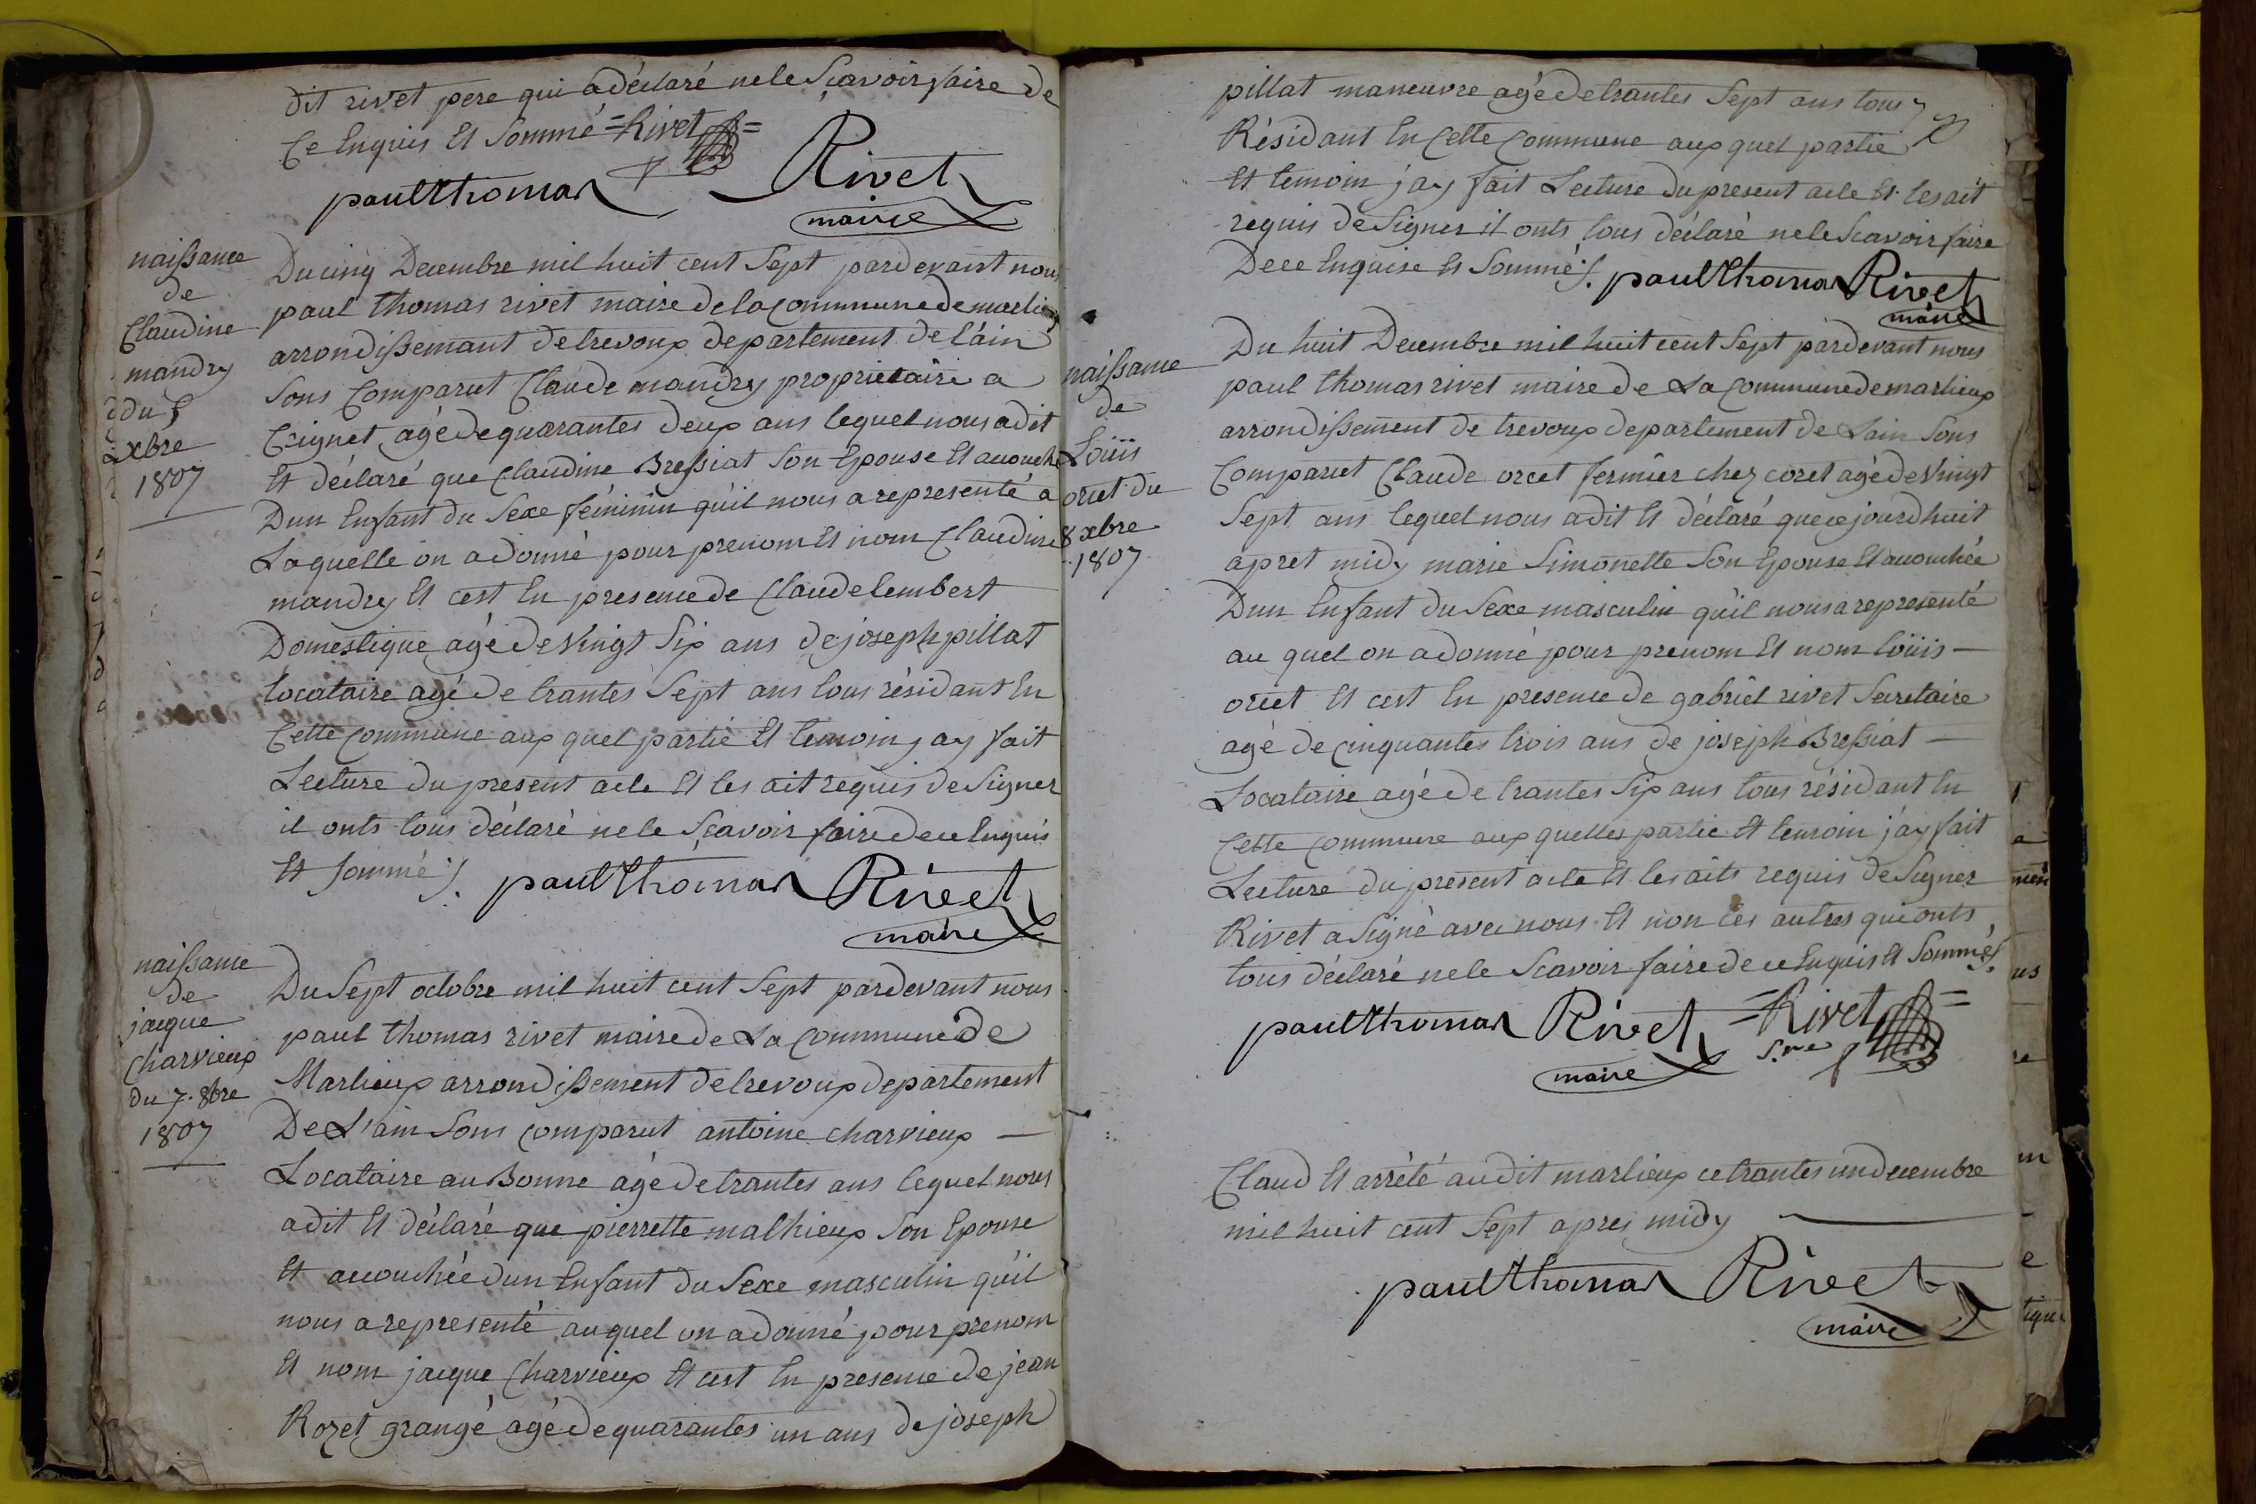 dit rivet pere qui a déclaré ne le Scavoir faire de
Ce Enquis Et Sommé = Rivet =
paul thomas Rivet
maire
naissance
de
Claudine
mandry
du 5
xbre
1807
Du cinq Decembre mil huit cent Sept pardevant nous
paul thomas rivet maire de la Commune de marlieux
arrondissemant de trevoux departement de l'ain
Sons Comparut Claude mandry proprietaire a
Crignet agé de quarantes deux ans lequel nous a dit
Et déclaré que Claudine Bressiat Son Epouse Et acouché
Dun Enfant du Sexe féminin qu'il nous a representé a
Laquelle on a donné pour prenom Et nom Claudine
mandry Et cest En presence de Claude lembert
Domestique agé de Vingt Six ans de joseph pillat
locataire agé de trantes Sept ans tous résidant En
Cette Commune aux quel partie Et temoin j ay fait
Lecture du present acte Et les ait requis de Signer
il onts tous déclaré ne le Scavoir faire de ce Enquis
Et Sommé ⁒. paul thomas Rivet
maire
naissance
de
jacque
Charvieux
du 7. 8bre
1807
Du Sept octobre mil huit cent Sept pardevant nous
paul thomas rivet maire de La Commune de
Marlieux arrondissement de trevoux departement
De L'ain Sons comparut antoine charvieux —
Locataire au Bonne agé de trantes ans lequel nous
a dit Et déclaré que pierrette mathieux Son Epouse
Et acouchée d'un Enfant du Sexe masculin qu'il
nous a representé auquel on a donné pour prenom
Et nom jacque Charvieux Et cest En presence de jean
Rozet grangé agé de quarantes un ans de joseph
pillat maneuvre agé de trantes Sept ans tous
Résidant En Cette Commune aux quel partie
Et temoin j ay fait Lecture du present acte Et les ait
requis de Signer il onts tous déclaré ne le Scavoir faire
De ce Enquise Et Sommé ⁒. paul thomas Rivet
maire
naissance
de
Loüis
orcet du
8 xbre
1807
Du huit Decembre mil huit cent Sept pardevant nous
paul thomas rivet maire de La Commune de marlieux
arrondissement de trevoux departement de Lain Sons
Comparut Claude orcet fermier chez coret agé de Vingt
Sept ans lequel nous a dit Et déclaré que ce jourdhuit
apret midy marie Simonette Son Epouse Et acouchée
Dun Enfant du Sexe masculin qu'il nous a representé
au quel on a donné pour prenom Et nom Loüis —
orcet Et cest En presence de gabriel rivet Secretaire
agé de cinquantes trois ans de joseph Bressiat —
Locataire agé de trantes Six ans tous résidant En
Cette commune aux quelles partie Et temoin j'ay fait
Lecture du present acte Et les aits requis de Signer
Rivet a Signé avec nous Et non les autres qui onts
tous déclaré ne le Scavoir faire de ce Enquis Et Sommé ⁒.
paul thomas Rivet = Rivet =
maire S.re
Claud Et arrété audit marlieux ce trantes un decembre
mil huit cent Sept apres midy —
paul thomas Rivet
maire